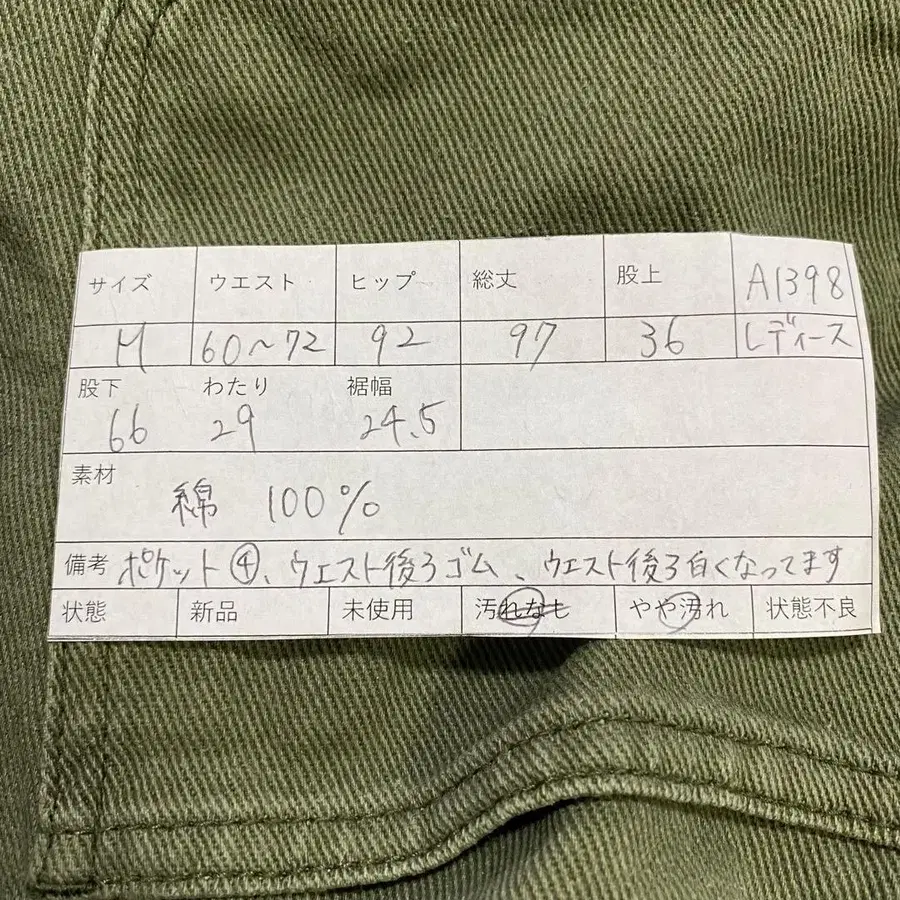 サイズ ウエスト ヒップ 総丈 股上 A1398
M 60~72 92 97 36 レディース
股下 わたり 裾幅
66 29 24.5
素材
綿 100%
備考 ポケット④、ウエスト後ろゴム、ウエスト後ろ白くなってます
状態 新品 未使用 汚れなし やや汚れ 状態不良